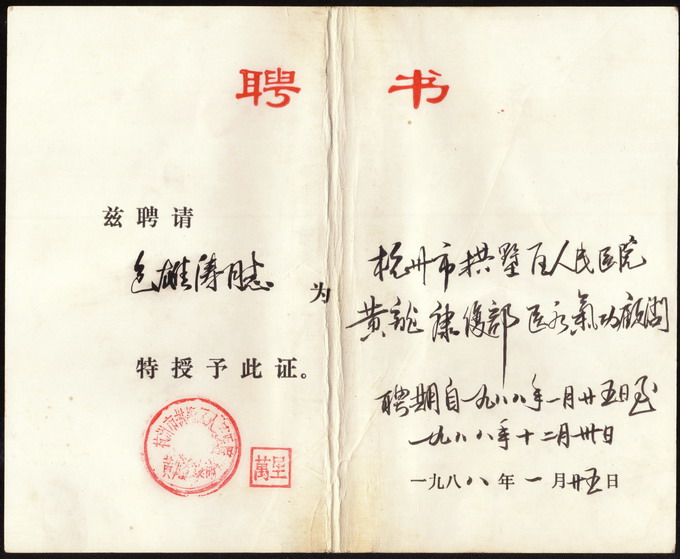 聘 书
兹聘请
雄涛同志 为
特授予此证。
杭州市拱墅区人民医院
黄龙康復部医疗氣功顧问
聘期自一九八八年一月廿五日至
一九八八年十二月卅日
一九八八年一月廿五日
杭州市拱墅区人民医院